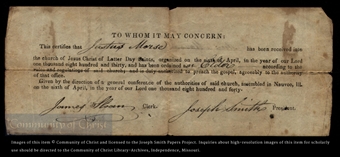 TO WHOM IT MAY CONCERN:
This certifies that Justus Morse has been received into
the church of Jesus Christ of Latter Day Saints, organized on the sixth of April, in the year of our Lord
one thousand eight hundred and thirty, and has been ordained an Elder according to the
rules and regulations of said church; and is duly authorized to preach the gospel, agreeably to the authority
of that office.
Given by the direction of a general conference of the authorities of said church, assembled in Nauvoo, Ill.
on the sixth of April, in the year of our Lord one thousand eight hundred and forty-
James Sloan Clerk. Joseph Smith President.
Community of Christ
Images of this item © Community of Christ and licensed to the Joseph Smith Papers Project. Inquiries about high-resolution images of this item for scholarly
use should be directed to the Community of Christ Library-Archives, Independence, Missouri.